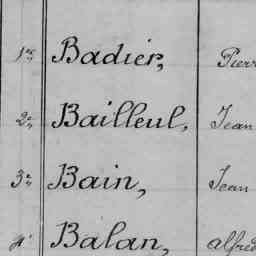 1er Badier, Pierr
2e Bailleul, Jean
3e Bain, Jean
4e Balan, Alfred